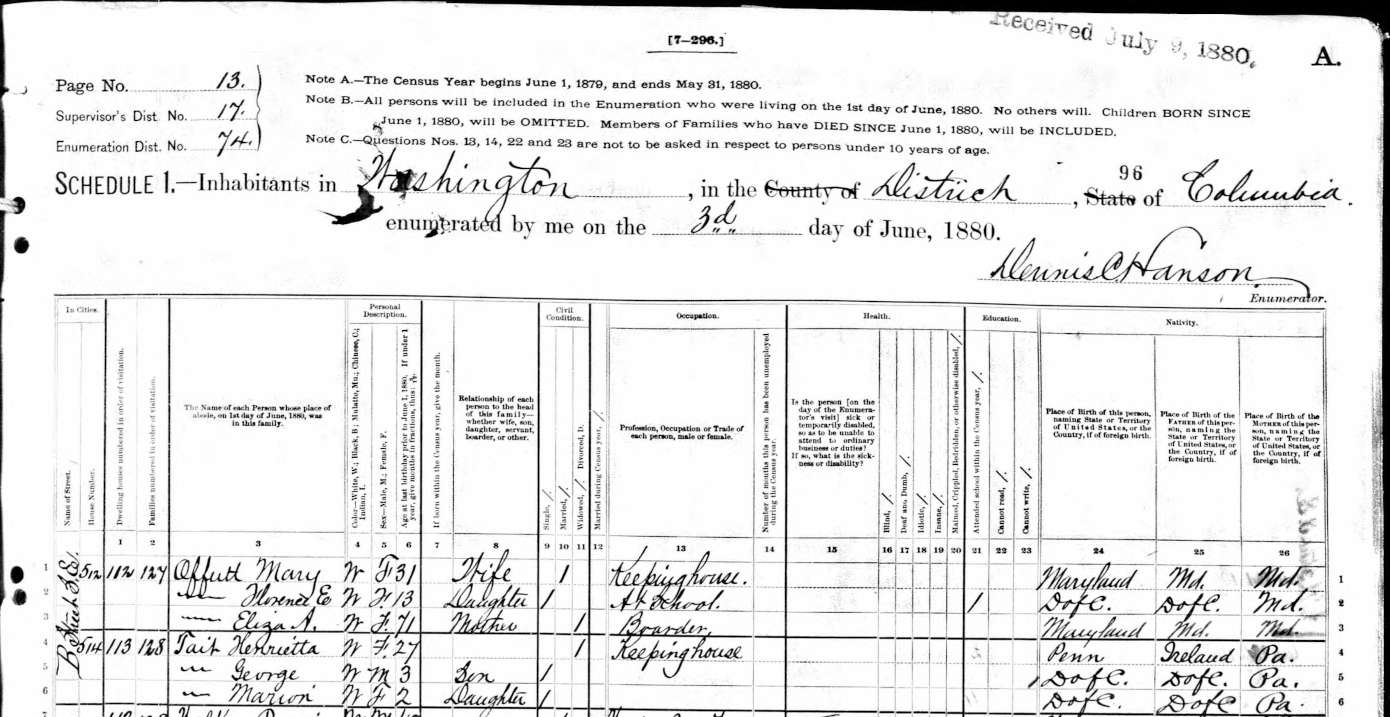 [7-296.]
Received July 9, 1880.
A.
Page No. 13.
Supervisor's Dist. No. 17.
Enumeration Dist. No. 74.
Note A.—The Census Year begins June 1, 1879, and ends May 31, 1880.
Note B.—All persons will be included in the Enumeration who were living on the 1st day of June, 1880. No others will. Children BORN SINCE
June 1, 1880, will be OMITTED. Members of Families who have DIED SINCE June 1, 1880, will be INCLUDED.
Note C.—Questions Nos. 13, 14, 22 and 23 are not to be asked in respect to persons under 10 years of age.
96
SCHEDULE 1.—Inhabitants in Washington, in the County of District, State of Columbia.
enumerated by me on the 3d day of June, 1880.
Dennis C. Hanson
Enumerator.
In Cities.
Name of Street.
House Number.
Dwelling houses numbered in order of visitation.
Families numbered in order of visitation.
The Name of each Person whose place of
abode, on 1st day of June, 1880, was
in this family.
Personal
Description.
Color—White, W.; Black, B.; Mulatto, Mu.; Chinese, C.;
Indian, I.
Sex—Male, M.; Female, F.
Age at last birthday prior to June 1, 1880. If under 1
year, give months in fractions, thus:
If born within the Census year, give the month.
Relationship of each
person to the head
of this family—
whether wife, son,
daughter, servant,
boarder, or other.
Civil
Condition.
Single, /.
Married, /.
Widowed, /. Divorced, D.
Married during Census year, /.
Occupation.
Profession, Occupation or Trade of
each person, male or female.
Number of months this person has been unemployed
during the Census year.
Health.
Is the person [on the
day of the Enumera-
tor's visit] sick or
temporarily disabled,
so as to be unable to
attend to ordinary
business or duties?
If so, what is the sick-
ness or disability?
Blind, /.
Deaf and Dumb, /.
Idiotic, /.
Insane, /.
Maimed, Crippled, Bedridden, or otherwise disabled, /.
Education.
Attended school within the Census year, /.
Cannot read, /.
Cannot write, /.
Nativity.
Place of Birth of this person,
naming State or Territory
of United States, or the
Country, if of foreign birth.
Place of Birth of the
FATHER of this per-
son, naming the
State or Territory
of United States, or
the Country, if of
foreign birth.
Place of Birth of the
MOTHER of this per-
son, naming the
State or Territory
of United States, or
the Country, if of
foreign birth.
1 2 3 4 5 6 7 8 9 10 11 12 13 14 15 16 17 18 19 20 21 22 23 24 25 26
B Street S.E.
1 512 112 127 Offutt Mary W F. 31 Wife / Keeping house. Maryland Md. Md. 1
2 " Florence E W F. 13 Daughter / At School. / D of C. D of C. Md. 2
3 " Eliza A. W F. 71 Mother / Boarder. Maryland Md. Md. 3
4 514 113 128 Tait Henrietta W F. 27 / Keeping house Penn Ireland Pa. 4
5 " George W M 3 Son / D of C. D of C. Pa. 5
6 " Marion W F 2 Daughter / D of C. D of C. Pa. 6